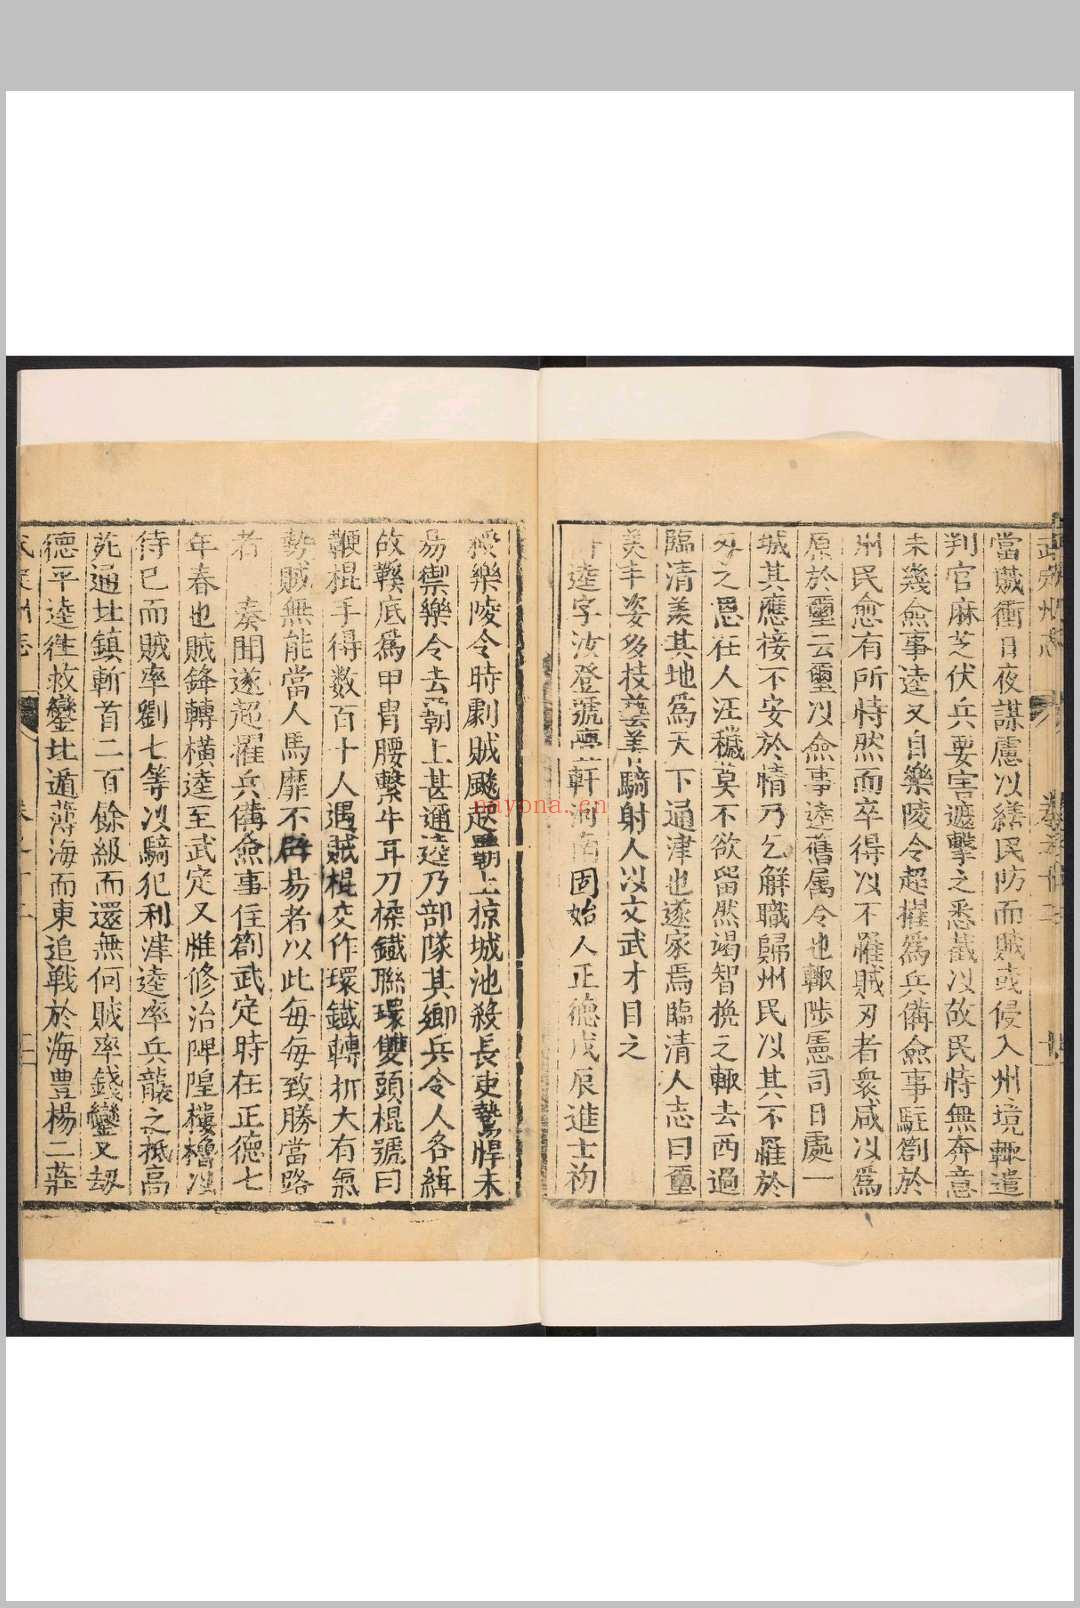 當賊衝日夜謀慮以繕民防而賊或侵入州境輙遣
判官麻芝伏兵要害遮擊之悉截以故民恃無奔意
未幾僉事逵又自樂陵令超擢爲兵備僉事駐劄於
州民愈有所恃然而卒得以不罹賊刃者衆咸以爲
原於璽云璽以僉事逵舊属令也輙陟憲司日處一
城其應接不安於情乃乞解職歸州民以其不罹於
刃之恩在人汪穢莫不欲留然竭智挽之輙去西過
臨清羡其地爲天下通津也遂家焉臨清人志曰璽
美丰姿多技藝善騎射人以文武才目之
逵字汝登號軒河南固始人正德戊辰進士初
授樂陵令時劇賊飈起朝上掠城池殺長吏鷙悍未
易禦樂令去朝上甚邇逵乃部隊其鄉兵令人各緝
故鞵底爲甲冑腰繫牛耳刀槺鐵聯環雙頭棍號曰
鞭棍手得数百十人遇賊棍交作環鐵轉折大有氣
勢賊無能當人馬靡不辟易者以此每每致勝當路
者 奏聞遂超擢兵備僉事住劄武定時在正德七
年春也賊鋒轉橫逵至武定又惟修治陴隍樓櫓以
待已而賊率劉七等以騎犯利津逵率兵蹑之抵高
苑通址鎮斬首二百餘級而還無何賊率錢鑾又刼
德平逵往救鑾北遁薄海而東追戰於海豊楊二莊
武定州志
nayona.cn